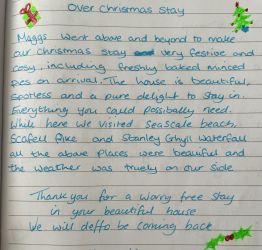 Over Christmas Stay
Maggs went above and beyond to make
our Christmas stay very festive and
cosy, including freshly baked minced
pies on arrival. The house is beautiful,
Spotless and a pure delight to stay in.
Everything you could possibally need.
While here we visited Seascale beach,
Scafell Pike and Stanley Ghyll Waterfall
all the above places were beautiful and
the weather was truely on our side
Thank you for a worry free stay
in your beautiful house
We will deffo be coming back